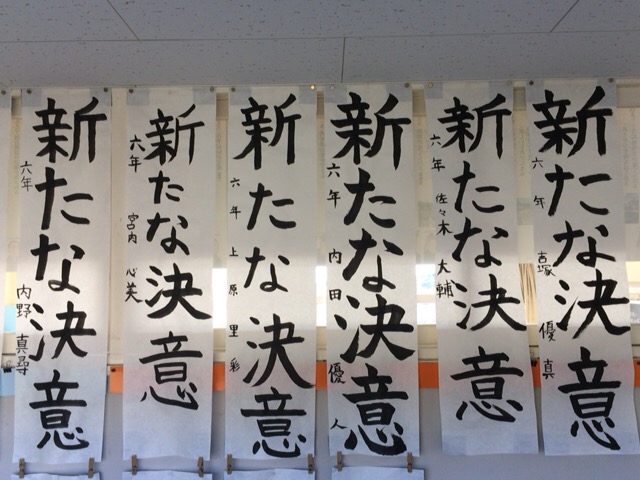 新たな決意
六年 吉塚 優真
新たな決意
六年 佐々木 大輔
新たな決意
六年 内田 優人
新たな決意
六年 上原 里彩
新たな決意
六年 宮内 心美
新たな決意
六年 内野 真尋